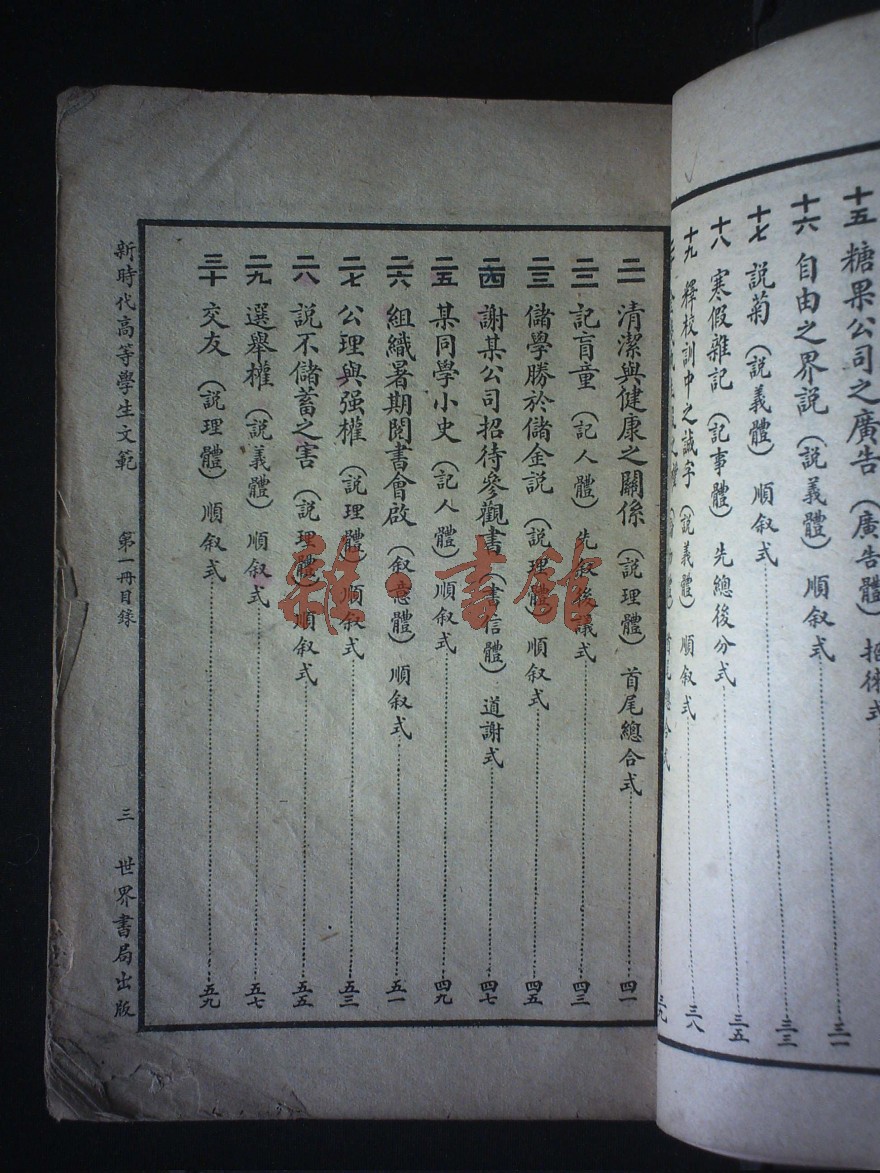 十五 糖果公司之廣告（廣告體）招徠式 三一
十六 自由之界說（說義體）順叙式 三三
十七 說菊（說義體）順叙式 三五
十八 寒假雜記（記事體）先總後分式
十九 釋校訓中之誠字（說義體）順叙式 三八
首尾總合式 三九
二一 清潔與健康之關係（說理體）首尾總合式 四一
二二 記盲童（記人體）先叙後議式 四三
二三 儲學勝於儲金說（說理體）順叙式 四五
二四 謝某公司招待參觀書（書信體）道謝式 四七
二五 某同學小史（記人體）順叙式 四九
二六 組織暑期閱書會啟（叙意體）順叙式 五一
二七 公理與强權（說理體）順叙式 五三
二八 說不儲蓄之害（說理體）順叙式 五五
二九 選舉權（說義體）順叙式 五七
三十 交友（說理體）順叙式 五九
新時代高等學生文範 第一冊目錄 三 世界書局出版
雜·書館